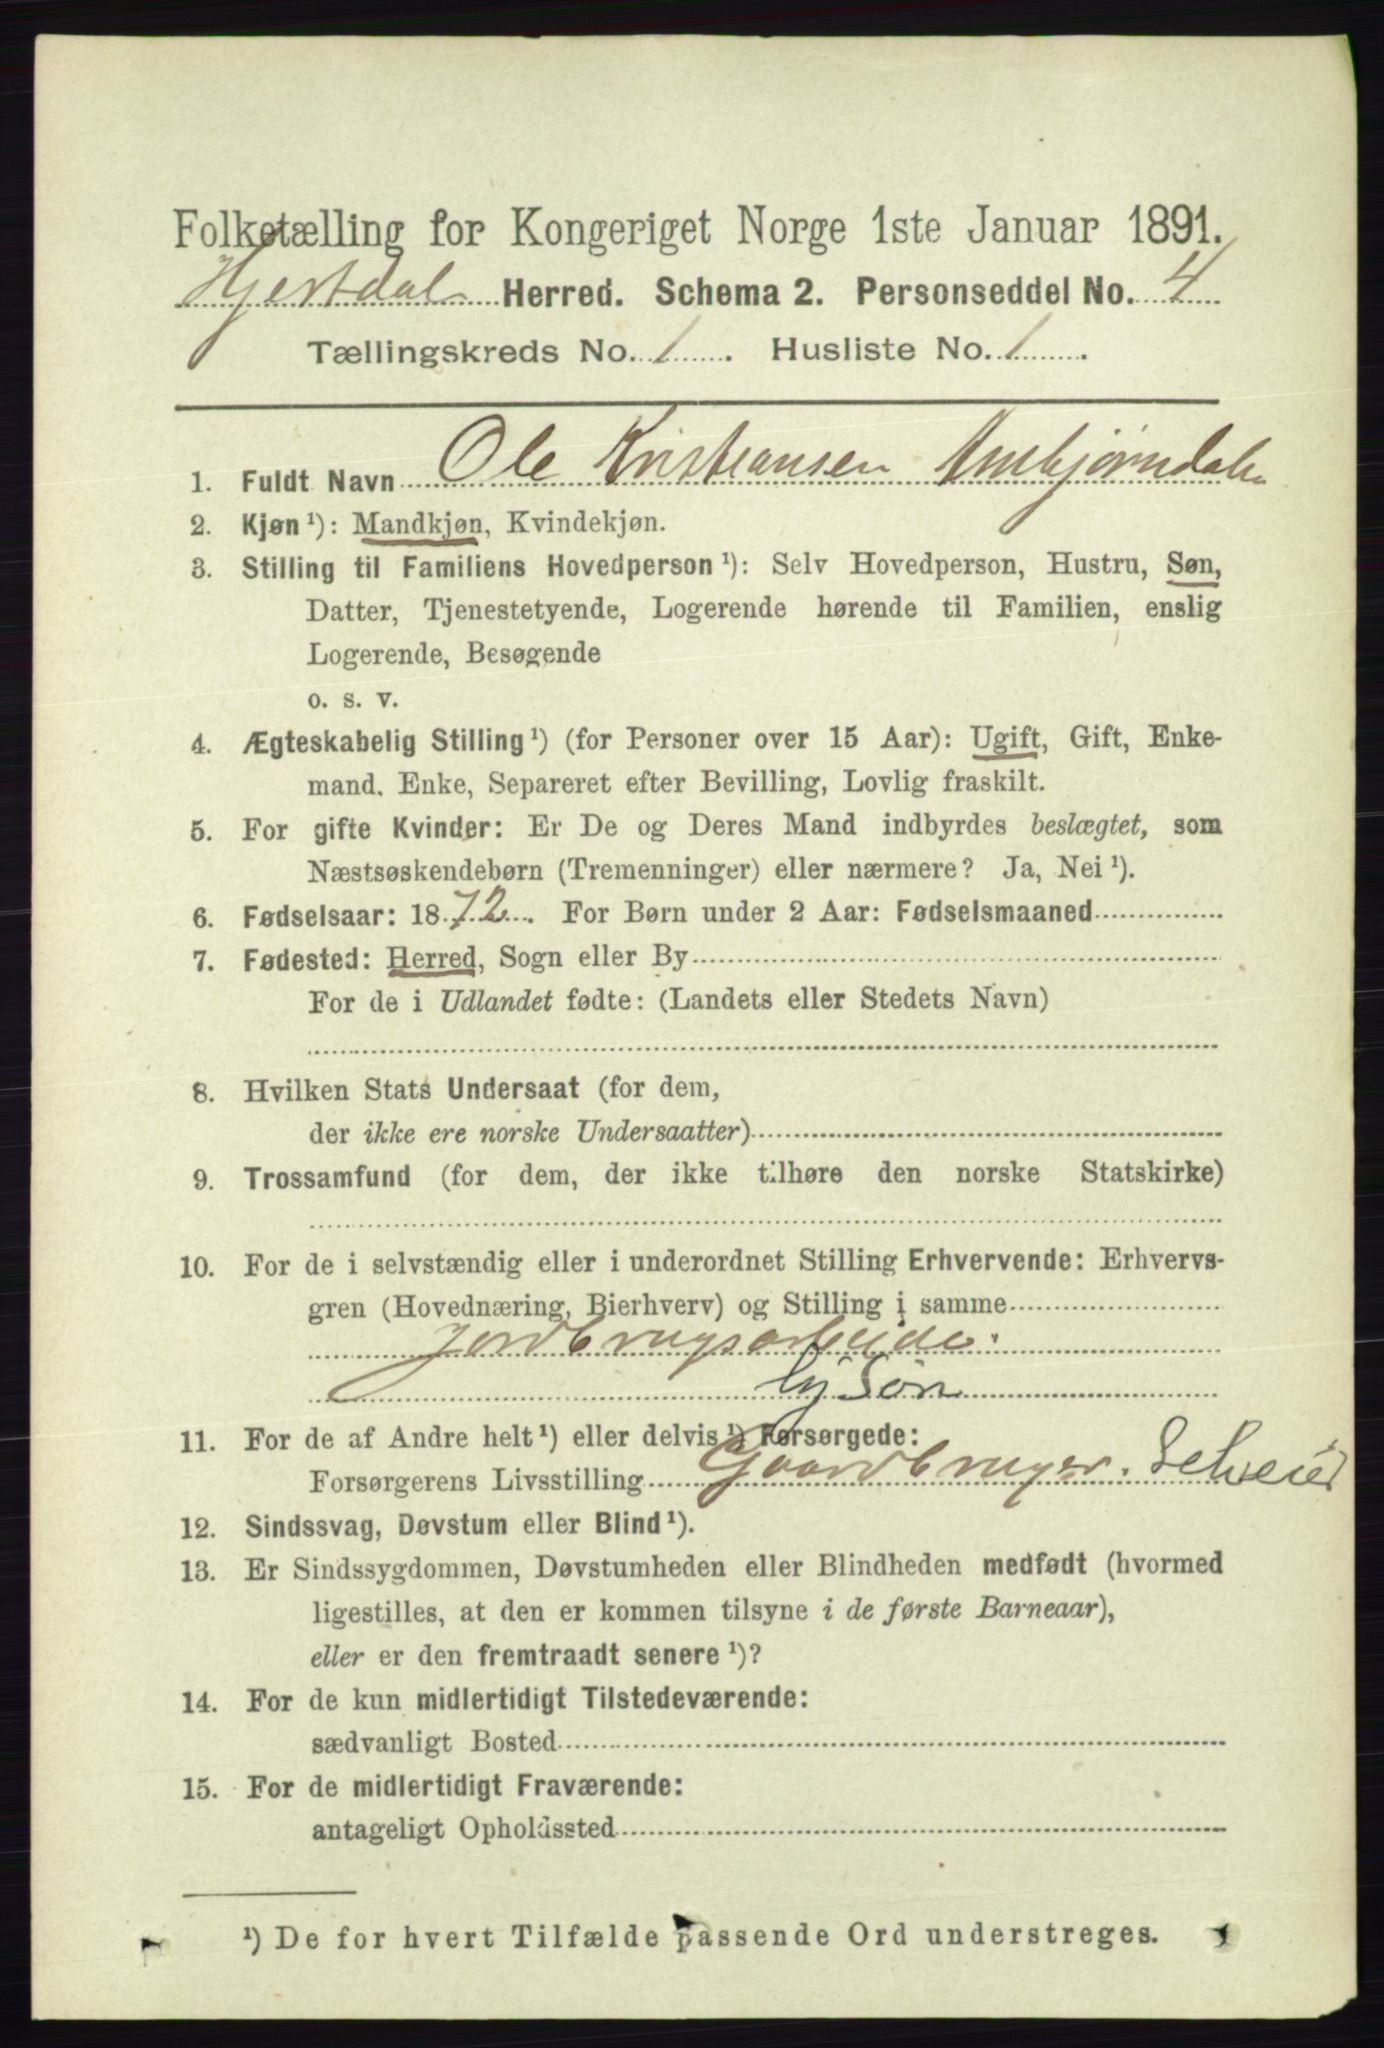 Folketælling for Kongeriget Norge 1ste Januar 1891.
Hjertdal Herred. Schema 2. Personseddel No. 4
Tællingskreds No. 1. Husliste No. 1.
1. Fuldt Navn Ole Kristiansen Ambjørndalen
2. Kjøn¹): Mandkjøn, Kvindekjøn.
3. Stilling til Familiens Hovedperson¹): Selv Hovedperson, Hustru, Søn,
Datter, Tjenestetyende, Logerende hørende til Familien, enslig
Logerende, Besøgende
o. s. v.
4. Ægteskabelig Stilling¹) (for Personer over 15 Aar): Ugift, Gift, Enke-
mand, Enke, Separeret efter Bevilling, Lovlig fraskilt.
5. For gifte Kvinder: Er De og Deres Mand indbyrdes beslægtet, som
Næstsøskendebørn (Tremenninger) eller nærmere? Ja, Nei¹).
6. Fødselsaar: 1872. For Børn under 2 Aar: Fødselsmaaned
7. Fødested: Herred, Sogn eller By
For de i Udlandet fødte: (Landets eller Stedets Navn)
8. Hvilken Stats Undersaat (for dem,
der ikke ere norske Undersaatter)
9. Trossamfund (for dem, der ikke tilhøre den norske Statskirke)
10. For de i selvstændig eller i underordnet Stilling Erhvervende: Erhvervs-
gren (Hovednæring, Bierhverv) og Stilling i samme
Jordbrugsarbeide.
Søn
11. For de af Andre helt¹) eller delvis¹) Forsørgede:
Forsørgerens Livsstilling Gaardbruger. Selveier
12. Sindssvag, Døvstum eller Blind¹).
13. Er Sindssygdommen, Døvstumheden eller Blindheden medfødt (hvormed
ligestilles, at den er kommen tilsyne i de første Barneaar),
eller er den fremtraadt senere¹)?
14. For de kun midlertidigt Tilstedeværende:
sædvanligt Bosted
15. For de midlertidigt Fraværende:
antageligt Opholdssted
¹) De for hvert Tilfælde passende Ord understreges.